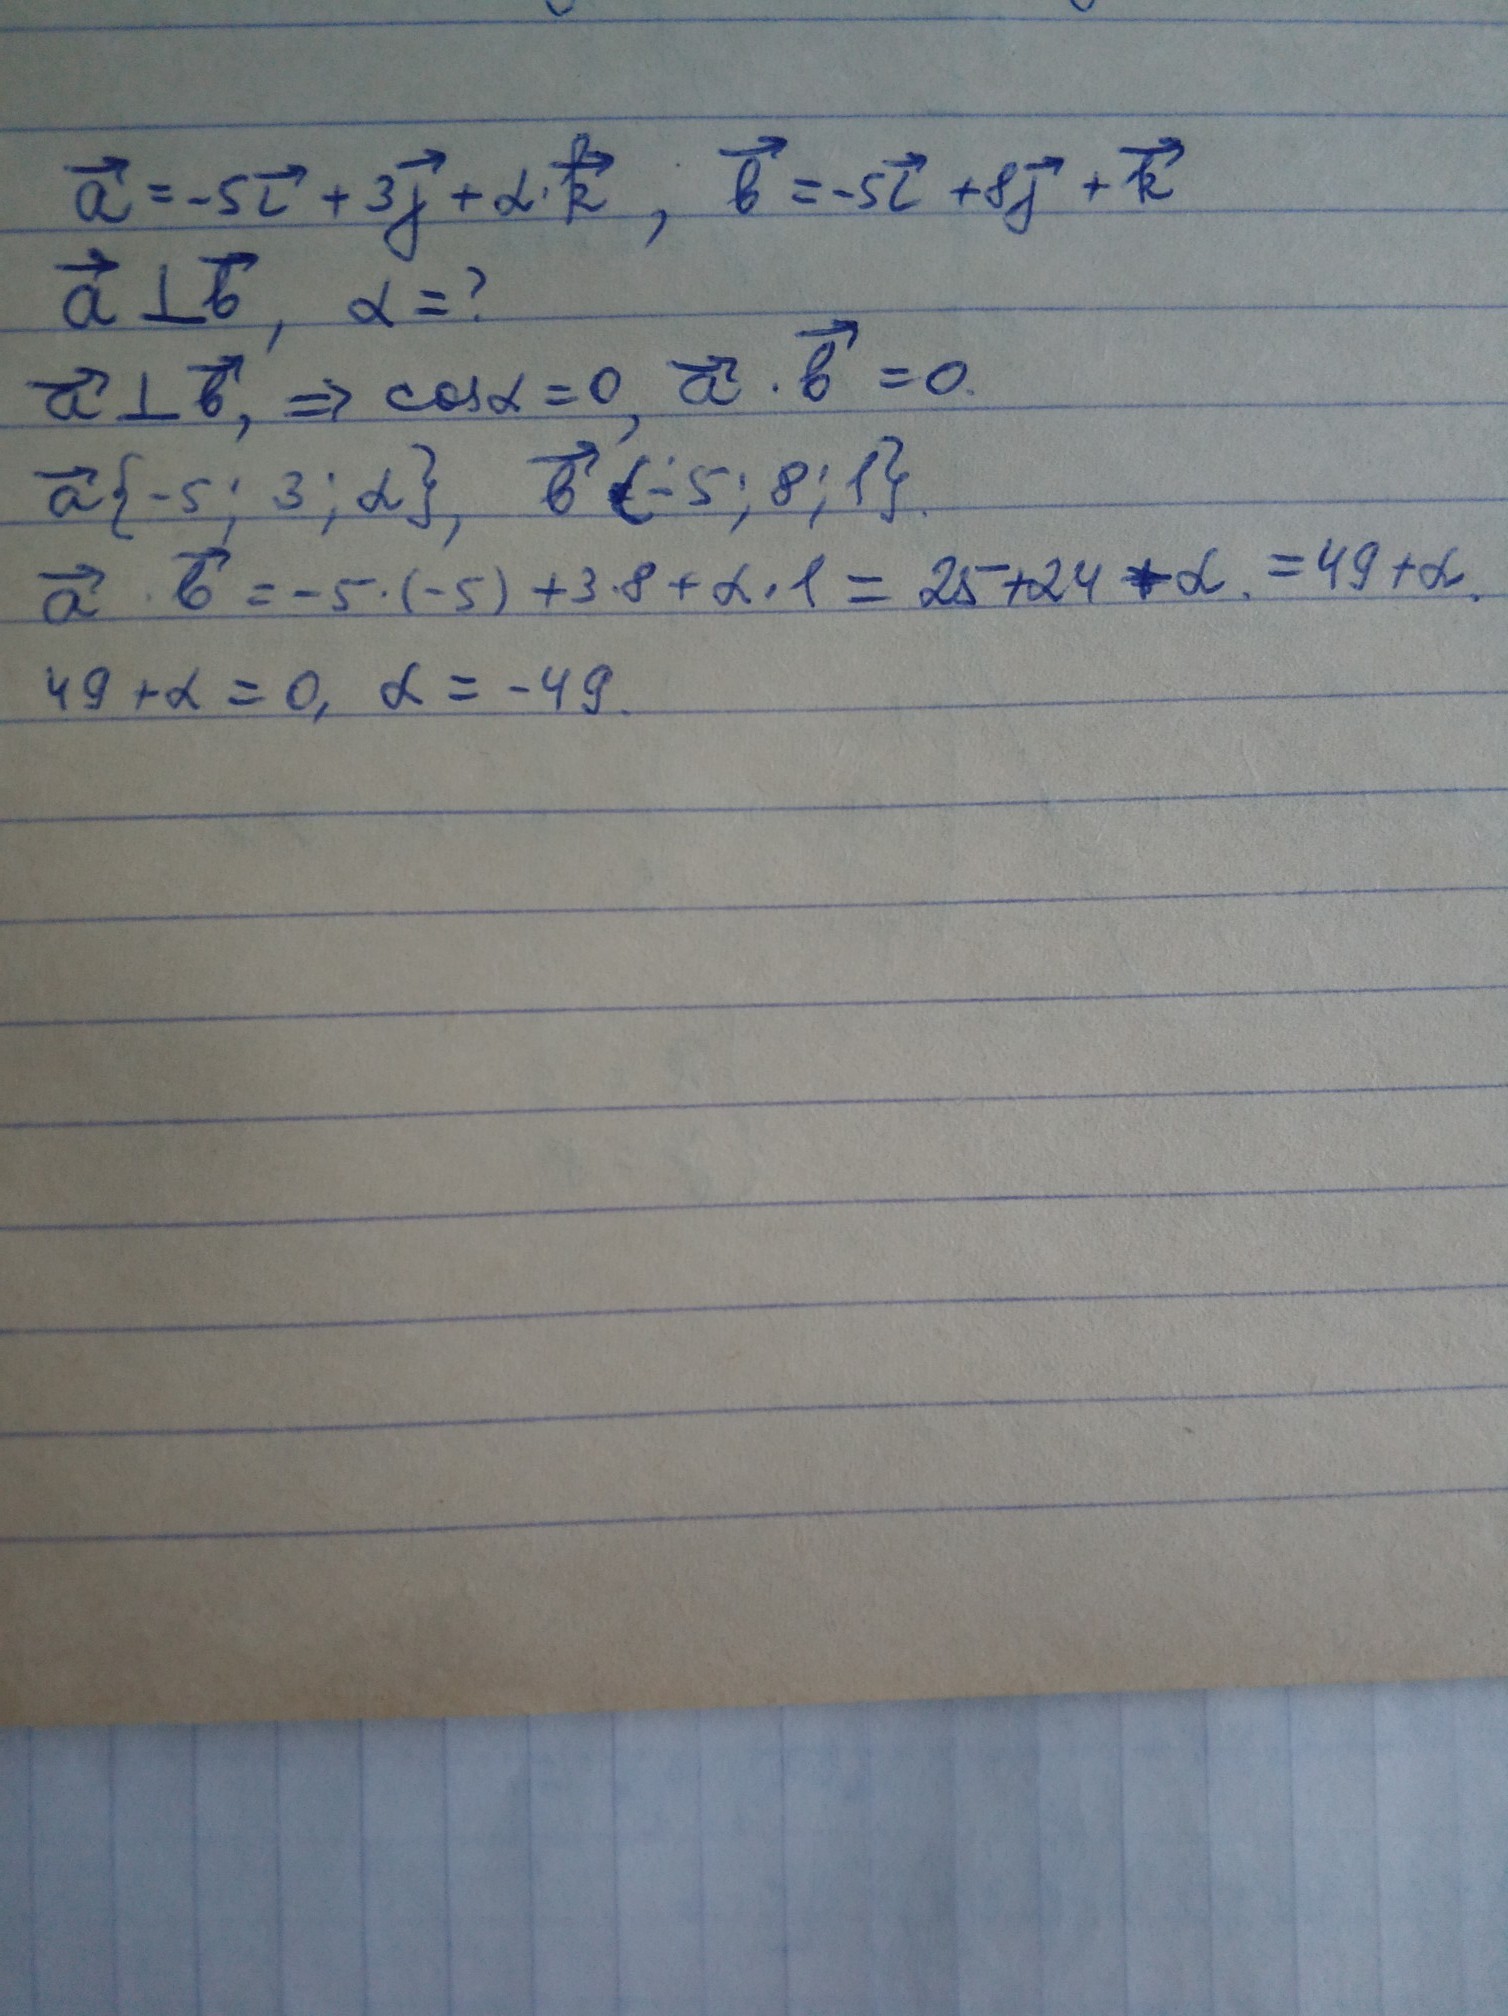 a⃗ = -5i⃗ + 3j⃗ + α·k⃗, b⃗ = -5i⃗ + 8j⃗ + k⃗
a⃗ ⊥ b⃗, α = ?
a⃗ ⊥ b⃗, ⇒ cosα = 0, a⃗ · b⃗ = 0.
a⃗{-5; 3; α}, b⃗{-5; 8; 1}.
a⃗ · b⃗ = -5·(-5) + 3·8 + α·1 = 25 + 24 + α. = 49 + α.
49 + α = 0, α = -49.